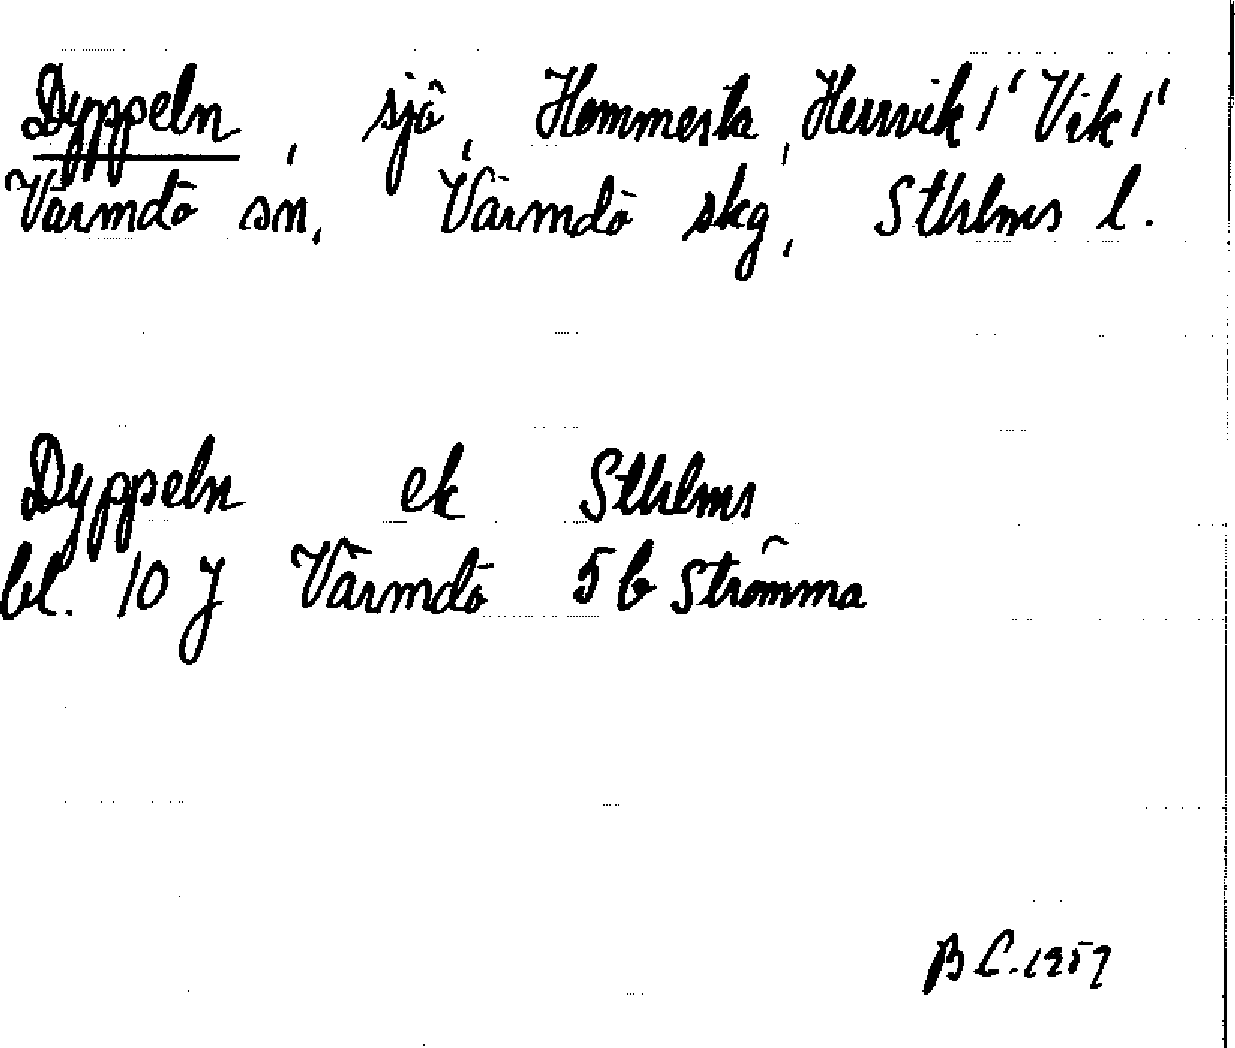 Dyppeln, sjö, Hemmesta, Herrvik 1' Vik 1'
Värmdö sn, Värmdö skg, Sthlms l.
Dyppeln ek Sthlms
bl. 10 J Värmdö 5 b Strömma
B L. 1957